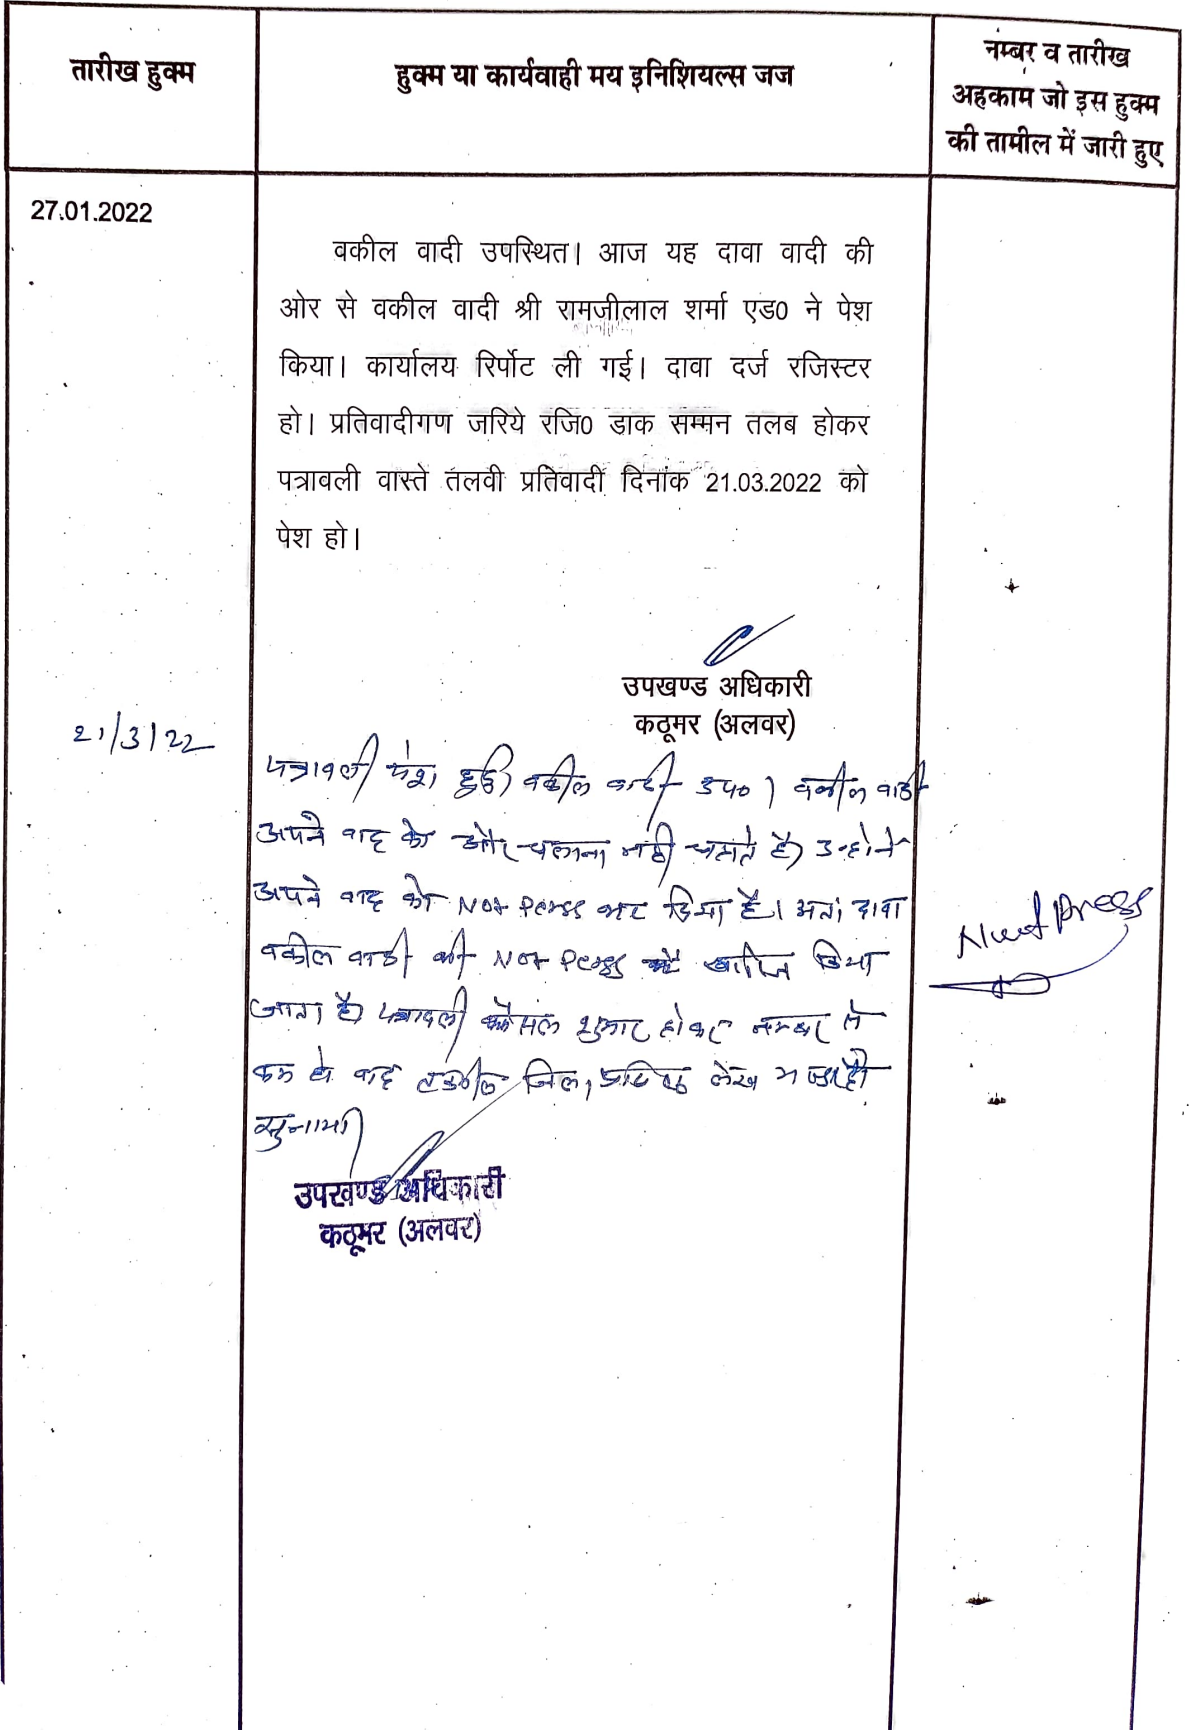 तारीख हुक्म
हुक्म या कार्यवाही मय इनिशियल्स जज
नम्बर व तारीख
अहकाम जो इस हुक्म
की तामील में जारी हुए
27.01.2022
वकील वादी उपस्थित। आज यह दावा वादी की
ओर से वकील वादी श्री रामजीलाल शर्मा एड0 ने पेश
किया। कार्यालय रिर्पोट ली गई। दावा दर्ज रजिस्टर
हो। प्रतिवादीगण जरिये रजि0 डाक सम्मन तलब होकर
पत्रावली वास्ते तलवी प्रतिवादी दिनांक 21.03.2022 को
पेश हो।
उपखण्ड अधिकारी
कठूमर (अलवर)
21/3/22
पत्रावली पेश हुई। वकील वादी उप0। वकील वादी
अपने वाद को और चलाना नही चाहते है। उन्होने
अपने वाद को Not Perss कर दिया है। अतः दावा
वकील वादी की Not Perss खारिज किया
जाता है। पत्रावली फैसल शुमार होकर नम्बर से
कम हो वाद
सुनाया।
Not Press
उपखण्ड अधिकारी
कठूमर (अलवर)